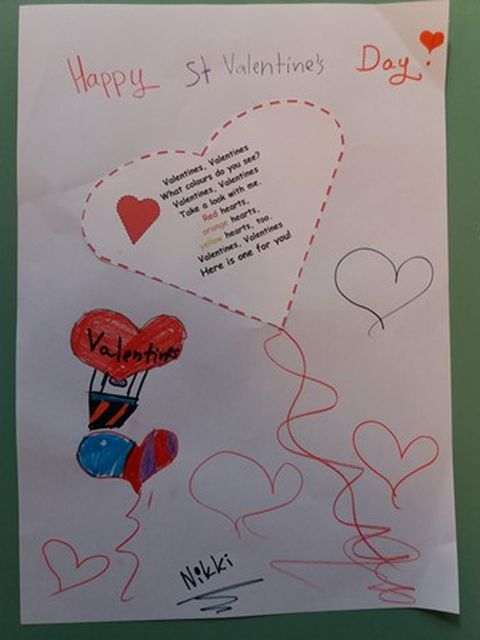 Happy St Valentine's Day!
Valentines, Valentines
What colours do you see?
Valentines, Valentines
Take a look with me.
Red hearts,
orange hearts,
yellow hearts, too.
Valentines, Valentines
Here is one for you!
Valentines
Nikki